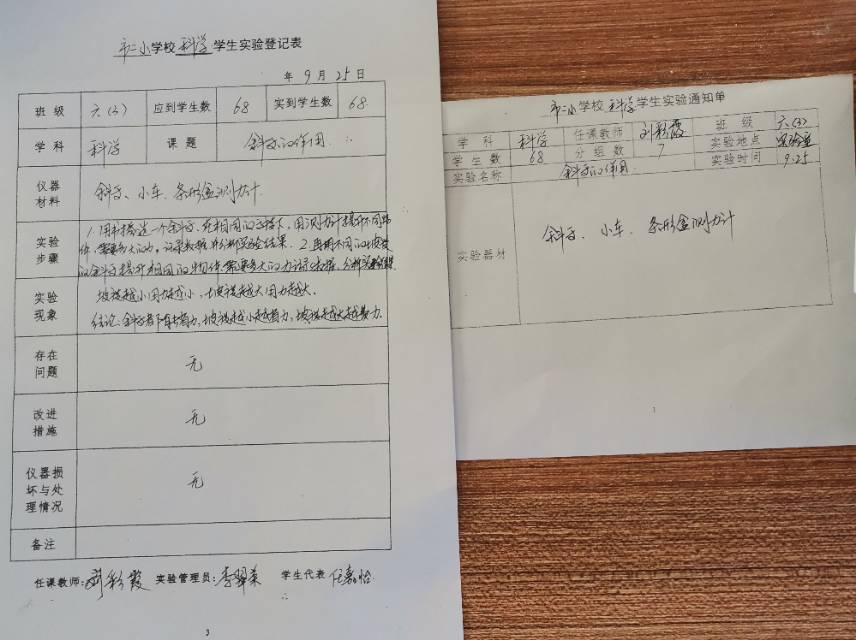 市二小学校 科学 学生实验登记表
年 9 月 25 日
班 级 六(3) 应到学生数 68 实到学生数 68
学 科 科学 课 题 斜面的作用
仪器材料 斜面、小车、条形盒测力计
实验步骤 1.用木板搭一个斜面,在相同的坡度下,用测力计提升不同物
体,需要多大的力,记录数据,并分析实验结果。2.再用不同的坡度
的斜面提升相同的物体需要多大的力记录数据,分析实验结果
实验现象 坡度越小用力越小,坡度越大用力越大。
结论:斜面有省力,坡度越小越省力,坡度越大越费力
存在问题 无
改进措施 无
仪器损坏与处理情况 无
备注
任课教师:刘彩霞 实验管理员:李翠荣 学生代表 任嘉怡
3
市二小学校 科学 学生实验通知单
学 科 科学 任课教师 刘彩霞 班 级 六(3)
学 生 数 68 分 组 数 7 实验地点 实验室
实验名称 斜面的作用 实验时间 9.25
实验器材 斜面、小车、条形盒测力计
1